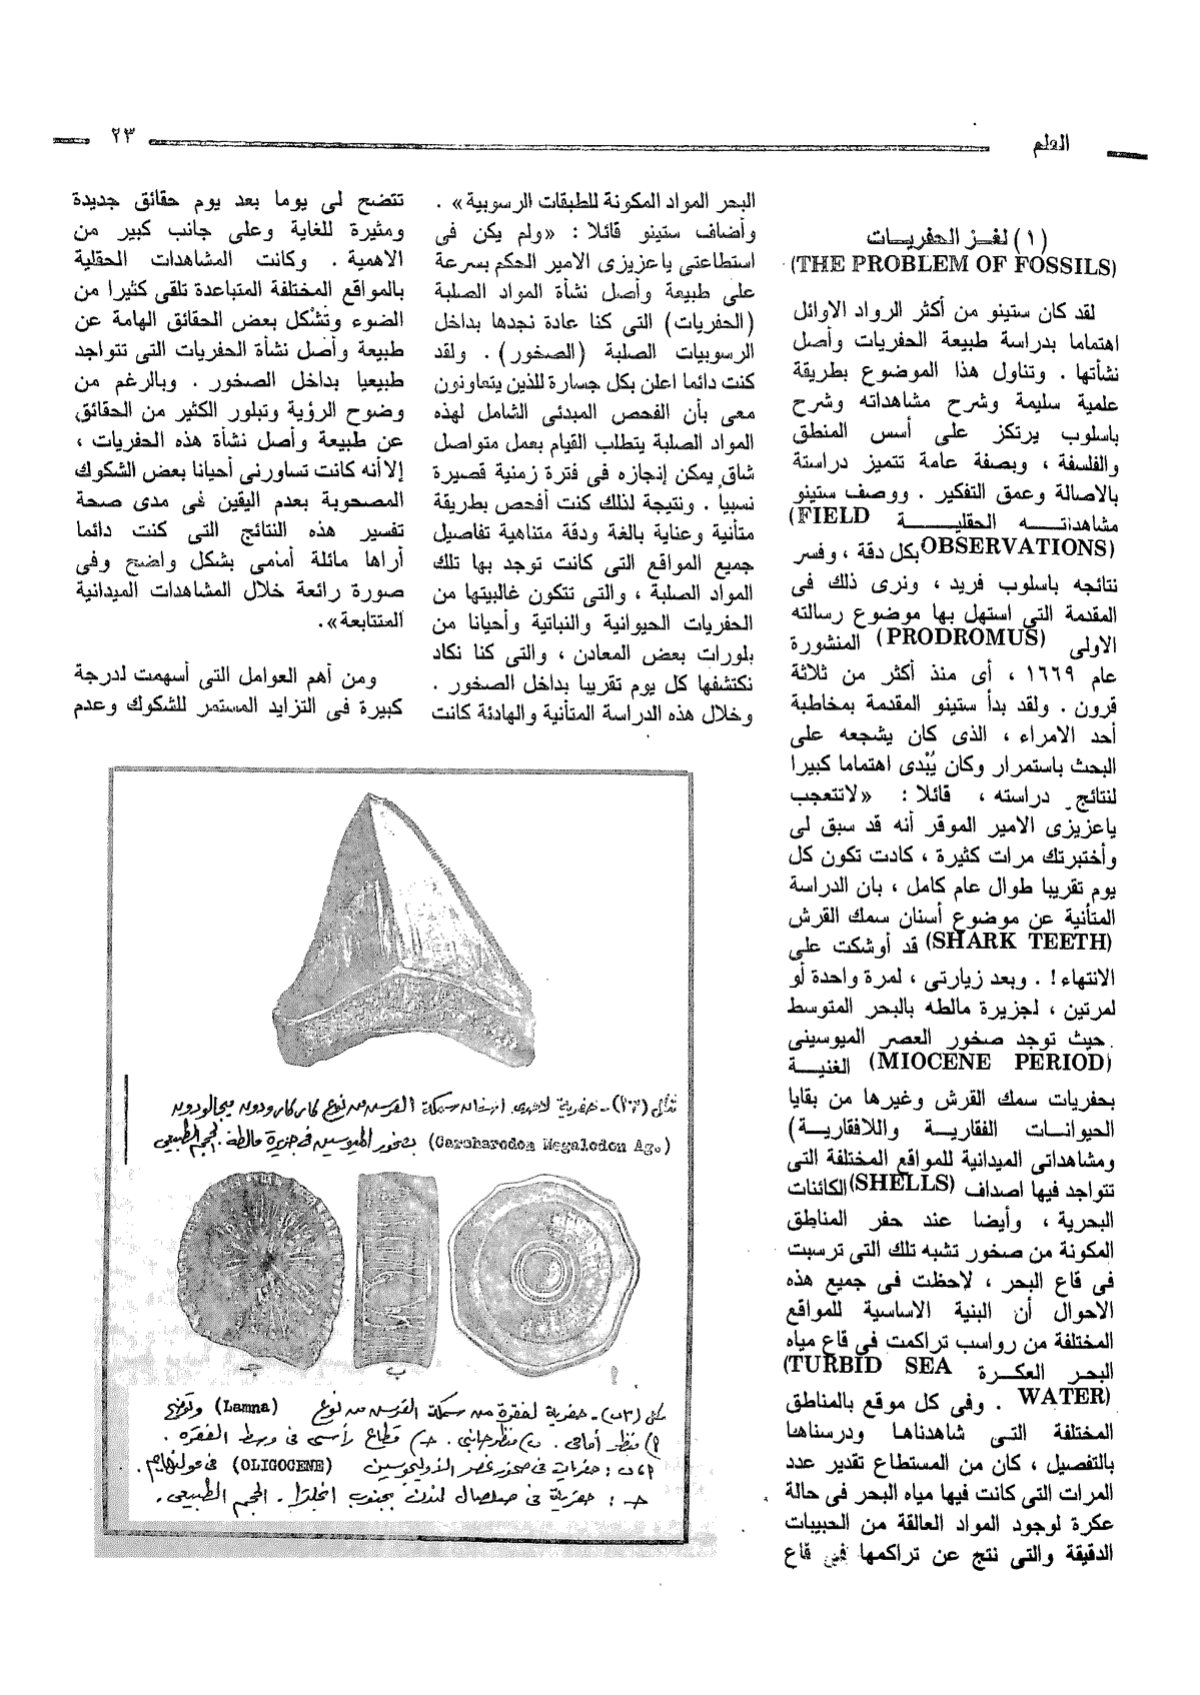 العلم
٢٣
(١) لغـز الحفريــات
(THE PROBLEM OF FOSSILS)
لقد كان ستينو من أكثر الرواد الاوائل
اهتماما بدراسة طبيعة الحفريات وأصل
نشأتها . وتناول هذا الموضوع بطريقة
علمية سليمة وشرح مشاهداته وشرح
باسلوب يرتكز على أسس المنطق
والفلسفة ، وبصفة عامة تتميز دراستة
بالاصالة وعمق التفكير . ووصف ستينو
مشاهداتـــه الحقليــــــة (FIELD
OBSERVATIONS) بكل دقة ، وفسر
نتائجه باسلوب فريد ، ونرى ذلك فى
المقدمة التى استهل بها موضوع رسالته
الاولى (PRODROMUS) المنشورة
عام ١٦٦٩ ، أى منذ أكثر من ثلاثة
قرون . ولقد بدأ ستينو المقدمة بمخاطبة
أحد الامراء ، الذى كان يشجعه على
البحث باستمرار وكان يُبْدى اهتماما كبيرا
لنتائج دراسته ، قائلا : «لاتتعجب
ياعزيزى الامير الموقر أنه قد سبق لى
وأختبرتك مرات كثيرة ، كادت تكون كل
يوم تقريبا طوال عام كامل ، بان الدراسة
المتأنية عن موضوع أسنان سمك القرش
(SHARK TEETH) قد أوشكت على
الانتهاء ! . وبعد زيارتى ، لمرة واحدة لو
لمرتين ، لجزيرة مالطه بالبحر المتوسط
حيث توجد صخور العصر الميوسينى
(MIOCENE PERIOD) الغنيـــة
بحفريات سمك القرش وغيرها من بقايا
الحيوانــات الفقاريــة واللافقاريــة)
ومشاهداتى الميدانية للمواقع المختلفة التى
تتواجد فيها اصداف (SHELLS) الكائنات
البحرية ، وأيضا عند حفر المناطق
المكونة من صخور تشبه تلك التى ترسبت
فى قاع البحر ، لاحظت فى جميع هذه
الاحوال أن البنية الاساسية للمواقع
المختلفة من رواسب تراكمت فى قاع مياه
البحر العكـــرة (TURBID SEA
WATER) . وفى كل موقع بالمناطق
المختلفة التى شاهدناها ودرسناها
بالتفصيل ، كان من المستطاع تقدير عدد
المرات التى كانت فيها مياه البحر فى حالة
عكرة لوجود المواد العالقة من الحبيبات
الدقيقة والتى نتج عن تراكمها فى قاع
البحر المواد المكونة للطبقات الرسوبية» .
وأضاف ستينو قائلا : «ولم يكن فى
استطاعتى ياعزيزى الامير الحكم بسرعة
على طبيعة وأصل نشأة المواد الصلبة
(الحفريات) التى كنا عادة نجدها بداخل
الرسوبيات الصلبة (الصخور) . ولقد
كنت دائما اعلن بكل جسارة للذين يتعاونون
معى بأن الفحص المبدئى الشامل لهذه
المواد الصلبة يتطلب القيام بعمل متواصل
شاق يمكن إنجازه فى فترة زمنية قصيرة
نسبياً . ونتيجة لذلك كنت أفحص بطريقة
متأنية وعناية بالغة ودقة متناهية تفاصيل
جميع المواقع التى كانت توجد بها تلك
المواد الصلبة ، والتى تتكون غالبيتها من
الحفريات الحيوانية والنباتية وأحيانا من
بلورات بعض المعادن ، والتى كنا نكاد
نكتشفها كل يوم تقريبا بداخل الصخور .
وخلال هذه الدراسة المتأنية والهادئة كانت
تتضح لى يوما بعد يوم حقائق جديدة
ومثيرة للغاية وعلى جانب كبير من
الاهمية . وكانت المشاهدات الحقلية
بالمواقع المختلفة المتباعدة تلقى كثيرا من
الضوء وتُشكل بعض الحقائق الهامة عن
طبيعة وأصل نشأة الحفريات التى تتواجد
طبيعيا بداخل الصخور . وبالرغم من
وضوح الرؤية وتبلور الكثير من الحقائق
عن طبيعة وأصل نشأة هذه الحفريات ،
إلا أنه كانت تساورنى أحيانا بعض الشكوك
المصحوبة بعدم اليقين فى مدى صحة
تفسير هذه النتائج التى كنت دائما
أراها ماثلة أمامى بشكل واضح وفى
صورة رائعة خلال المشاهدات الميدانية
المتتابعة».
ومن أهم العوامل التى أسهمت لدرجة
كبيرة فى التزايد المستمر للشكوك وعدم
شكل (٢٢)ـ حفرية لاحدى اسنان سمكة القرش من نوع كاركارودون ميجالودون
(Carcharodon Megalodon Ag.) بصخور الميوسين فى جزيرة مالطة. الحجم الطبيعى
أ
ب
جـ
شكل (٢٣)ـ حفرية لفقرة من سمكة القرش من نوع (Lamna) وتوضح
أ) منظر أمامى . ب) منظر جانبى . جـ) قطاع رأسى فى وسط الفقرة .
أ، ب : حفريات فى صخور عصر الاوليجوسين (OLIGOCENE) فى
جـ : حفرية فى صلصال لندن بجنوب انجلترا . الحجم الطبيعى .